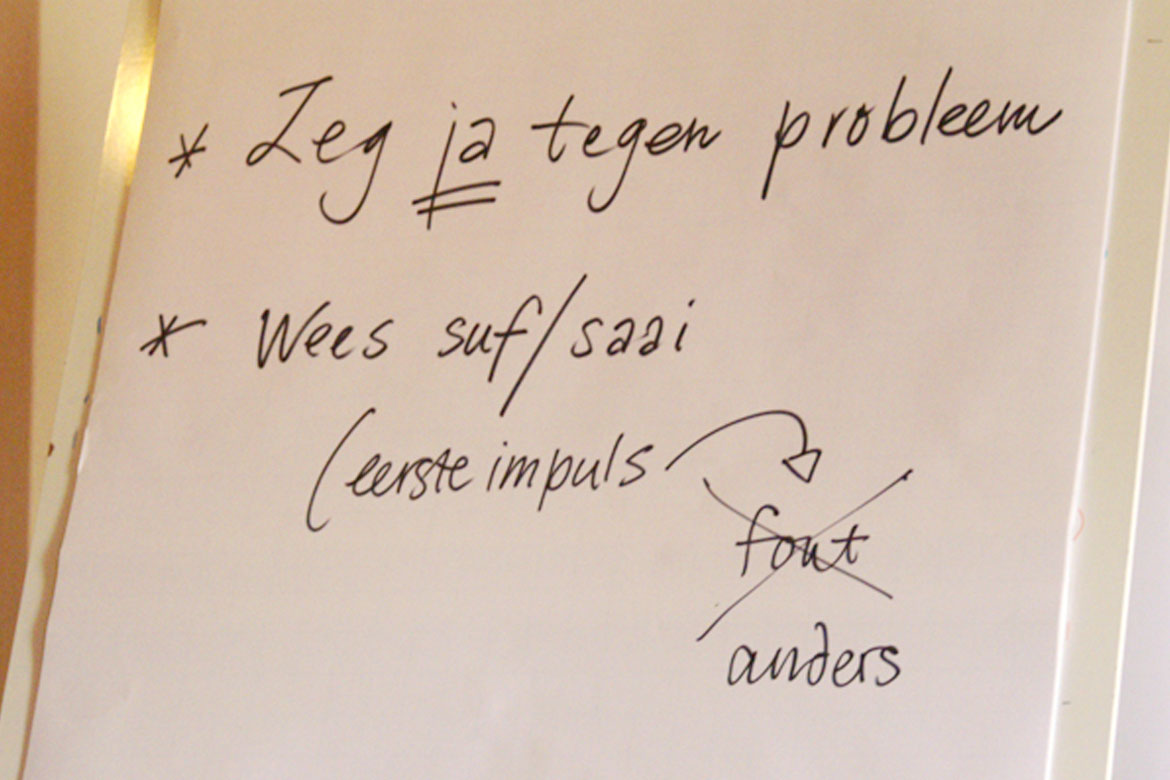 * Zeg ja tegen probleem
* Wees suf/saai
(eerste impuls
fout
anders